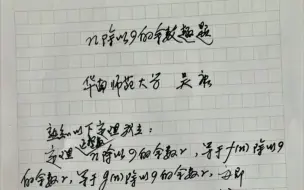 n除以9的余数趣题
华南师范大学 吴康
熟知以下定理成立:
定理 n除以9的余数r,等于f(n)除以9
的余数r,等于g(n)除以9的余数r,亦即